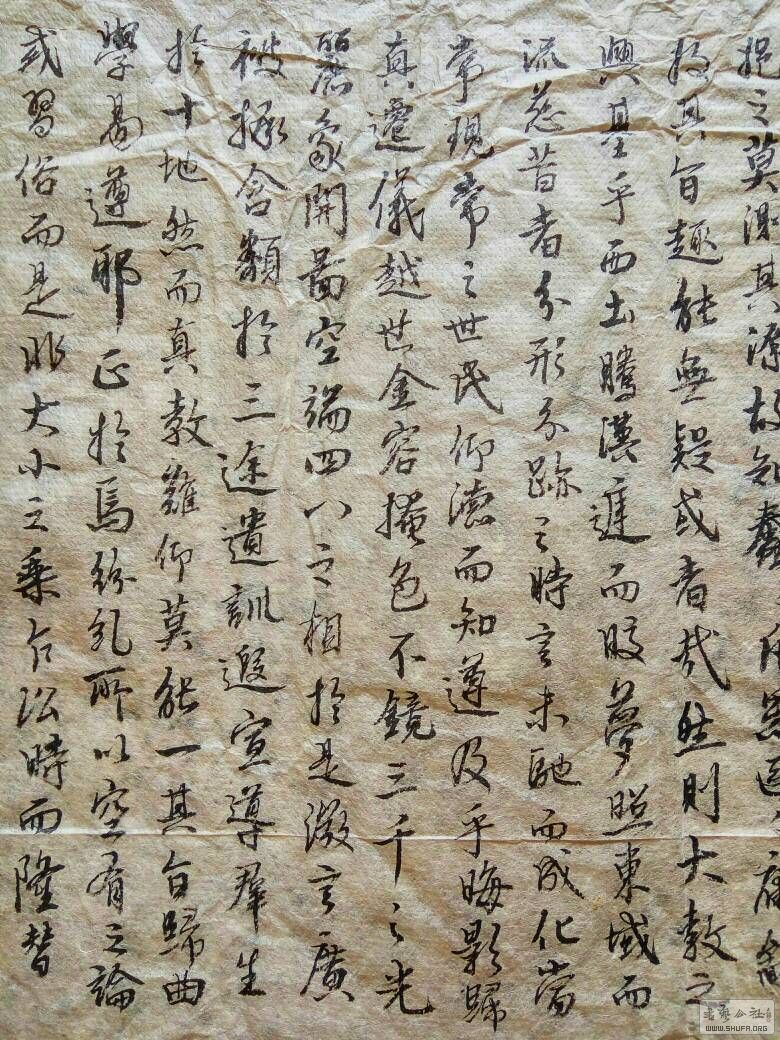 挹之莫測其源故知蠢
投其旨趣能無疑或者哉然則大教之
興基乎西土騰漢遑而晈夢照東域而
流慈昔者分形分跡之時言未馳而成化當
常現常之世民仰德而知遵及乎晦影歸
真遷儀越世金容掩色不鏡三千之光
麗象開圖空端四八之相於是微言廣
被拯含類於三途遺訓遐宣導群生
於十地然而真教難仰莫能一其旨歸曲
學易遵耶正於焉紛糺所以空有之論
或習俗而是非大小之乘乍沿時而隆替
書藝公社
WWW.SHUFA.ORG